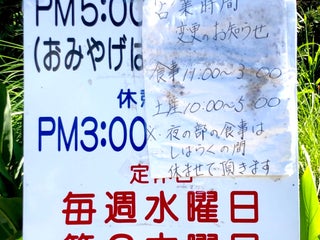 PM5:00
(おみやげは
休
PM3:00
定
毎週水曜日
営業時間
変更のお知らせ
食事 11:00〜3:00
土産 10:00〜5:00
※ 夜の部の食事は
しばらくの間
休ませて頂きます